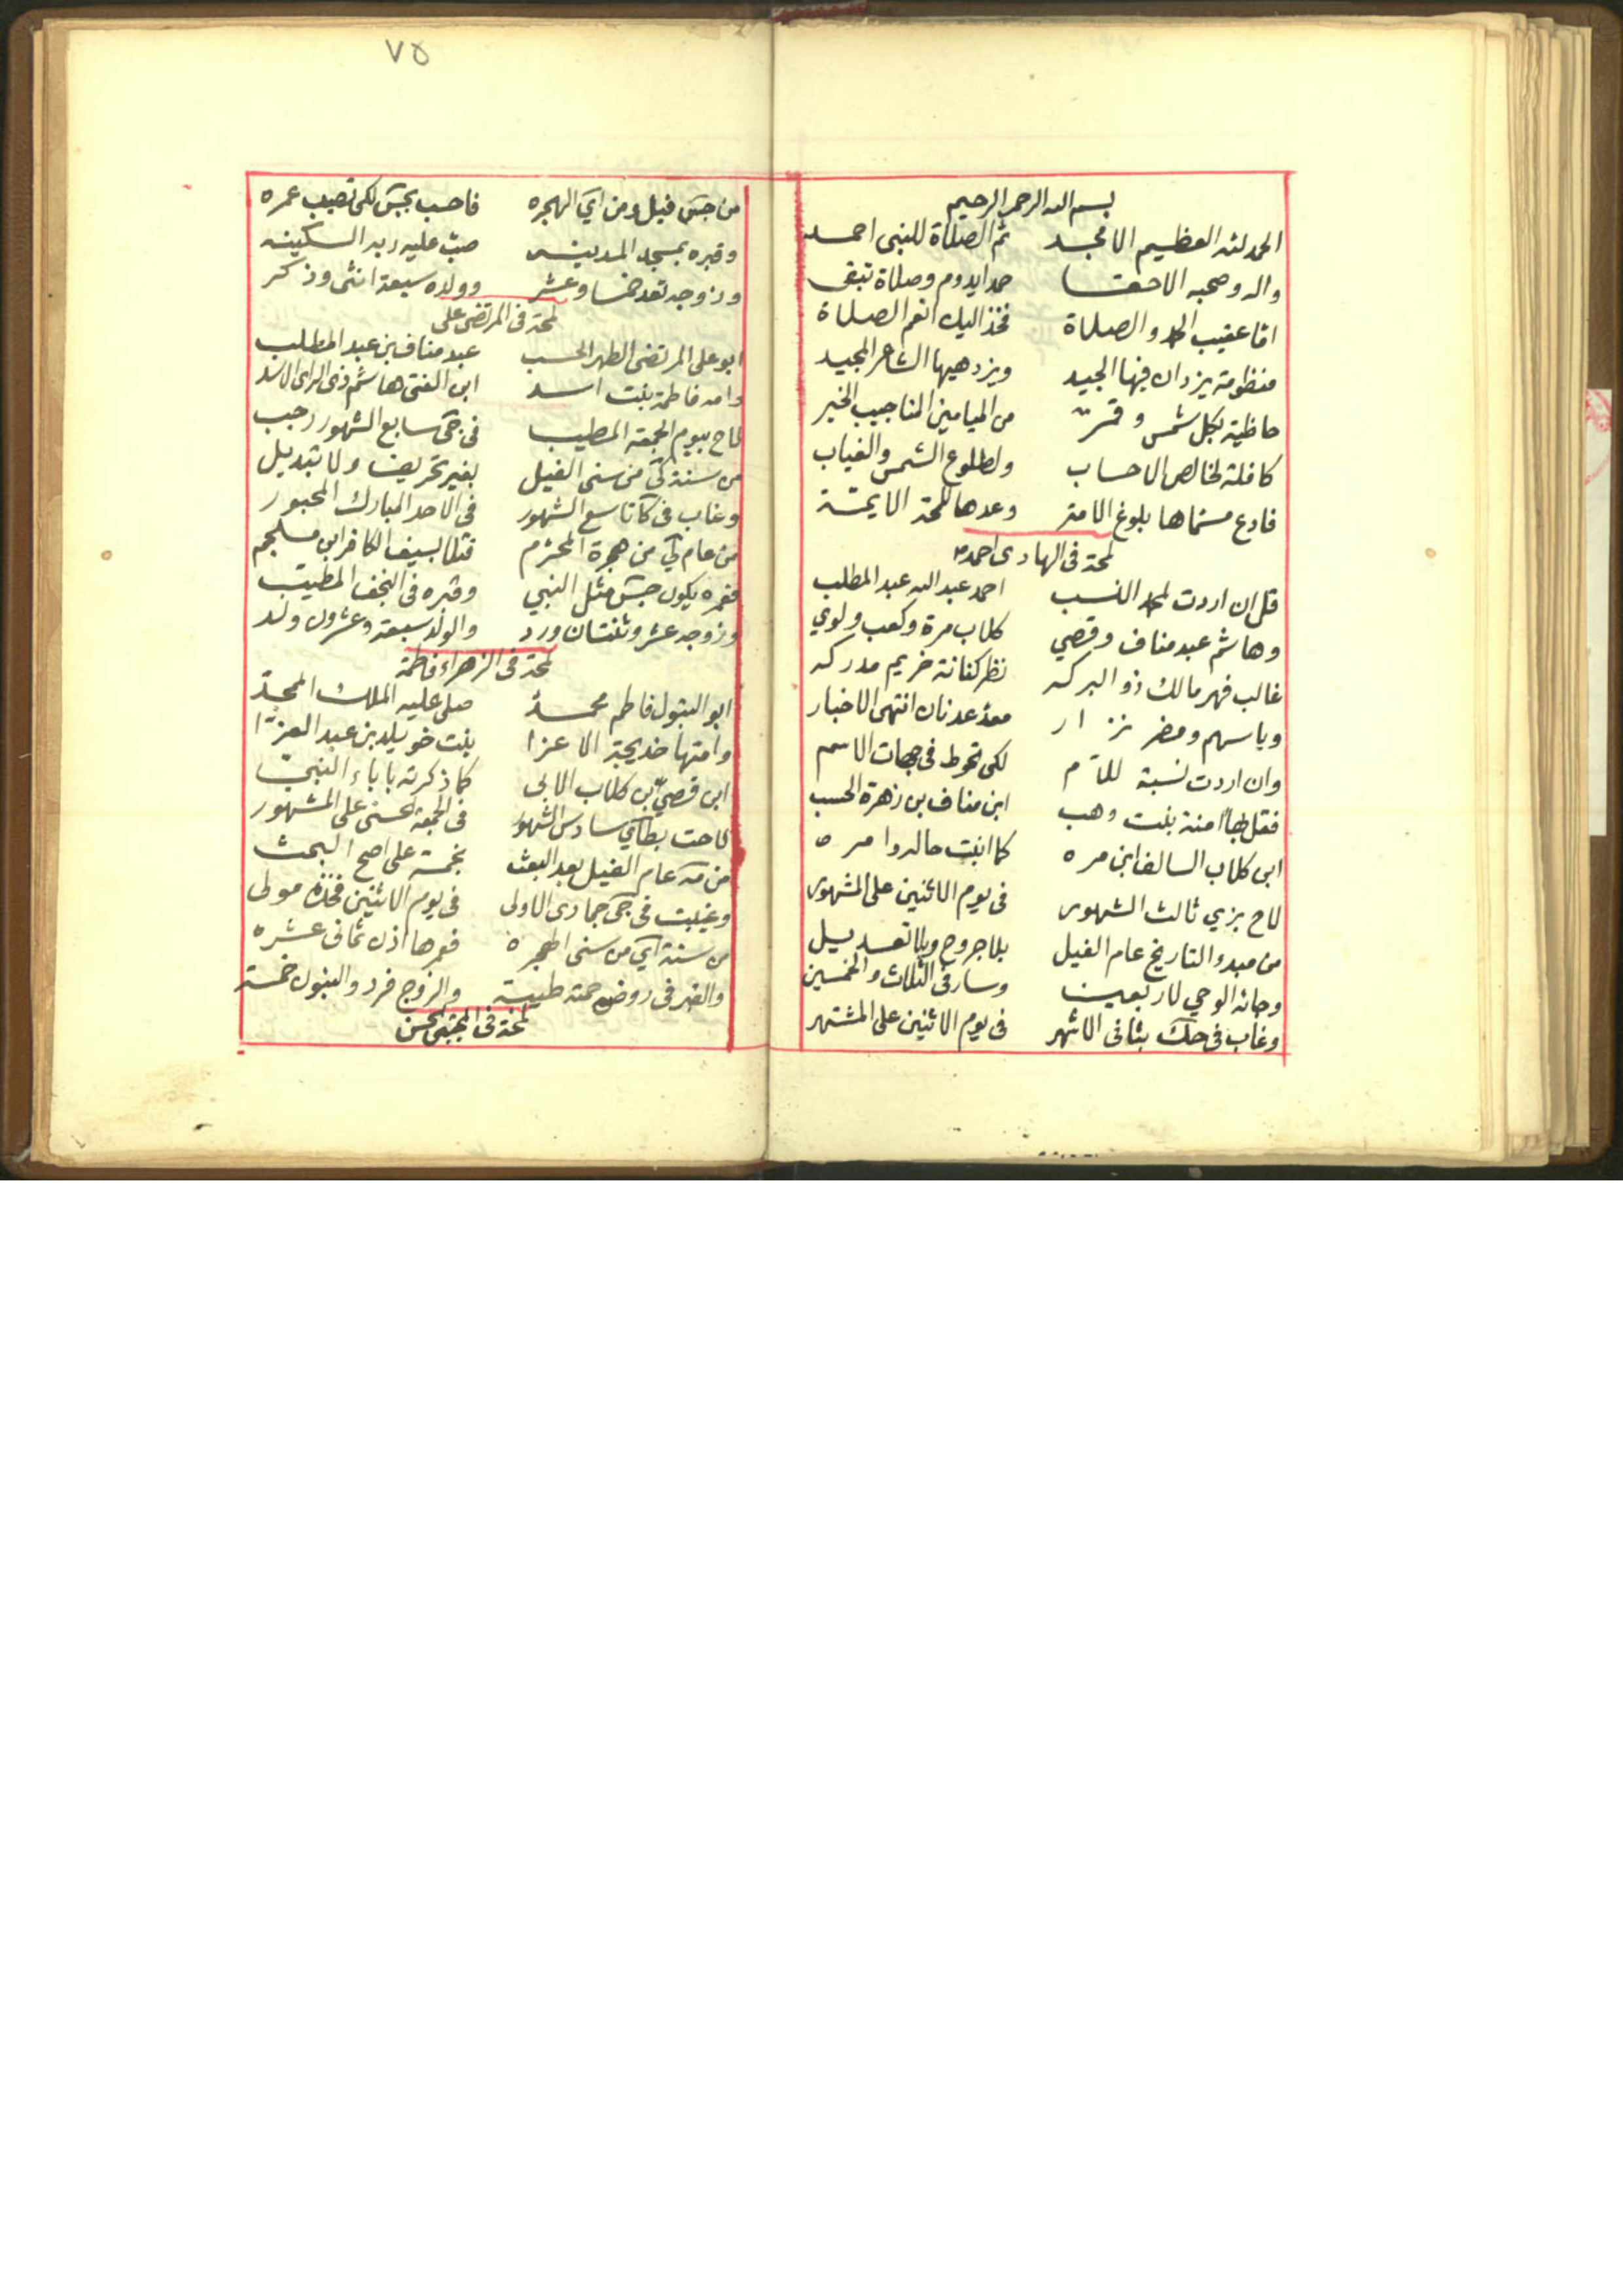 بسم الله الرحمن الرحيم
الحمد لله العظيم الامجد ثم الصلاة للنبى احمد
واله وصحبه الاحقا حمدا يدوم وصلاة تبقى
اما عقيب الحمد والصلاة فخذ اليك انعم الصلاة
منظومة يزدان فيها الجيد ويزدهيها الشاعر المجيد
حاظية بكل شمس وقمر من الميامين المناجيب الخير
كافلة لخالص الاحساب ولطلوع الشمس والغياب
فادع مسماها بلوغ الامة وعدها للمحة الايمة
لمحة فى الهادى احمد
قل ان اردت لمحمد النسب احمد عبد الله عبد المطلب
وهاشم عبد مناف وقصي كلاب مرة وكعب ولوي
غالب فهر مالك ذو البركه نظر كنانة خزيم مدركه
وياسهم ومضر نزار معد عدنان انتهى الاخبار
وان اردت نسبة للام لكى تحوط فى جهات الاسم
فقل لها امنة بنت وهب ابن مناف بن زهرة الحسب
ابن كلاب السالف ابن مره كما انبت
لاح بزي ثالث الشهور فى يوم الاثنين على المشهور
من مبدو التاريخ عام الفيل بلا جروح وبلا تعديل
وجائه الوحي لاربعين وسار فى الثلاث والخمسين
وغاب فى حك بثانى الاشهر فى يوم الاثنين على المشتهر
٧٥
من جس فيل ومن اي الهجره فاحسب بجس لكى تصيب عمره
وقبره بمسجد المدينه صب عليه ربه السكينه
وزوجه تعد خمسا وعشر وولده سبعة انثى وذكر
لمحة فى المرتضى على
ابو على المرتضى الطهر الحسب عبد مناف بن عبد المطلب
وامه فاطمة بنت اسد ابن الفتى هاشم ذى الراى الاسد
لاح بيوم الجمعة المطيب فى جى سابع الشهور رجب
من سنة كى من سنى الفيل بغير تحريف ولا تبديل
وغاب فى كا تاسع الشهور فى الاحد المبارك المحبور
من عام كي من هجرة المحترم قتلا بسيف الكافر ابن ملجم
فعمره يكون جس مثل النبي وقبره فى النجف المطيب
وزوجه عشر وثنتان ورد والولد سبعة وعشرون ولد
لمحة فى الزهراء فاطمة
ابو البتول فاطم محمد صلى عليه الملك الممجد
وامها خديجة الاعزا بنت خويلد بن عبد العزا
ابن قصي بن كلاب الابى كما ذكرته باباء النبي
لاحت بطاي سادس الشهور فى الجمعة على المشهور
من مه عام الفيل بعد البعث بخمسة على اصح البحث
وغيبت فى جى جمادى الاولى فى يوم الاثنين فخذه مولى
من سنة اي من سنى الهجره فعمرها اذن ثمانى عشره
والقبر فى روضة طيبة والزوج فرد والبنون خمسة
لمحة فى المجتبى الحسن